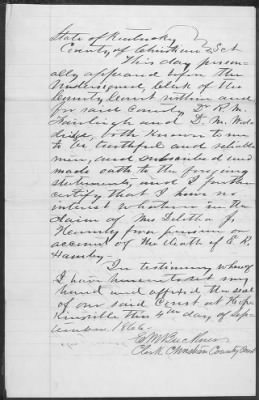 State of Kentucky
County of Christian Sct
This day person-
ally appeared before the
undersigned, clerk of the
County Court within and
for said County Dr R. M.
Fairleigh and D. M. W
both known to me
to be truthful and reliable
men, and subscribed and
made oath to the foregoing
statements, and I further
certify that I have no
interest whatever in the
claim of Mrs Tabitha J.
for a pension on
account of the death of E. R.
In testimony whereof
I have hereunto set my
hand and affixed the seal
of our said Court at Hop
kinsville this 4th day of Sep-
tember 1866
Clerk Christian County Court